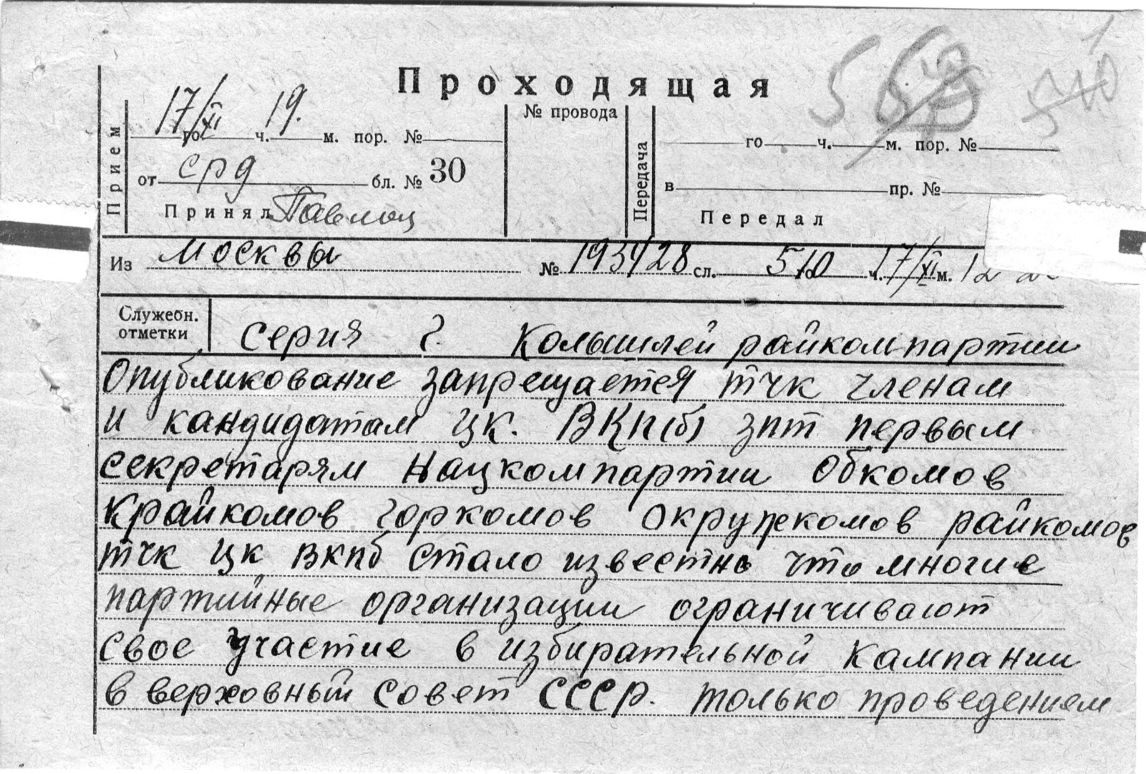 Проходящая
510
Прием
17/XI го ч. 19. м. пор. №
от срд бл. № 30
Принял
№ провода
Передача
го ч. м. пор. №
в пр. №
Передал
Из Москвы № 1939/28 сл. 510 ч. 17/XI м.
Служебн. отметки серия Г. Колышлей райкомпартии
Опубликование запрещается тчк членам
и кандидатам цк. ВКП(б) зпт первым
секретарям Нацкомпартии Обкомов
Крайкомов Горкомов Окружкомов райкомов
тчк цк вкпб стало известно что многие
партийные организации ограничивают
свое участие в избирательной кампании
в верховный совет СССР. только проведением